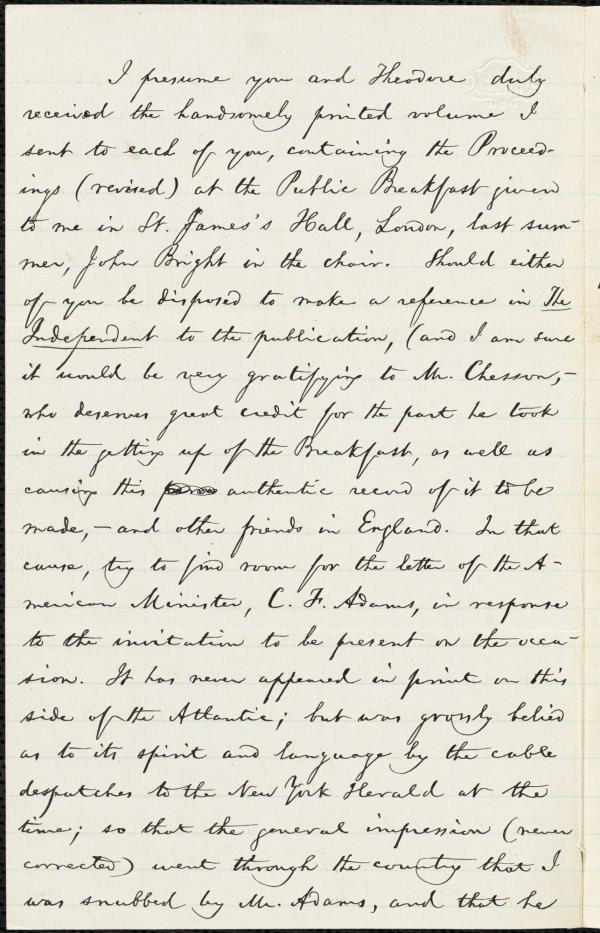 I presume you and Theodore duly
received the handsomely printed volume I
sent to each of you, containing the Proceed-
ings (revised) at the Public Breakfast given
to me in St. James's Hall, London, last sum-
mer, John Bright in the chair. Should either
of you be disposed to make a reference in The
Independent to the publication, (and I am sure
it would be very gratifying to Mr. Chesson,-
who deserves great credit for the part he took
in the getting up of the Breakfast, as well as
causing this authentic record of it to be
made,- and other friends in England. In that
cause, try to find room for the letter of the A-
merican Minister, C. F. Adams, in response
to the invitation to be present on the occa-
sion. It has never appeared in print on this
side of the Atlantic; but was grossly belied
as to its spirit and language by the cable
despatches to the New York Herald at the
time; so that the general impression (never
corrected) went through the country that I
was snubbed by Mr. Adams, and that he